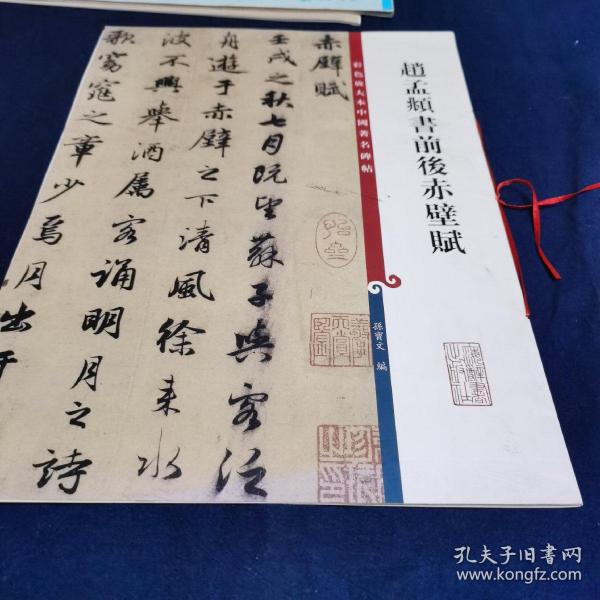 趙孟頫書前後赤壁賦
彩色放大本中國著名碑帖
孫寶文 編
赤壁賦
壬戌之秋七月既望蘇子與客泛
舟遊于赤壁之下清風徐来水
波不興舉酒屬客誦明月之詩
歌窈窕之章少焉月出于
孔夫子旧书网
www.kongfz.com